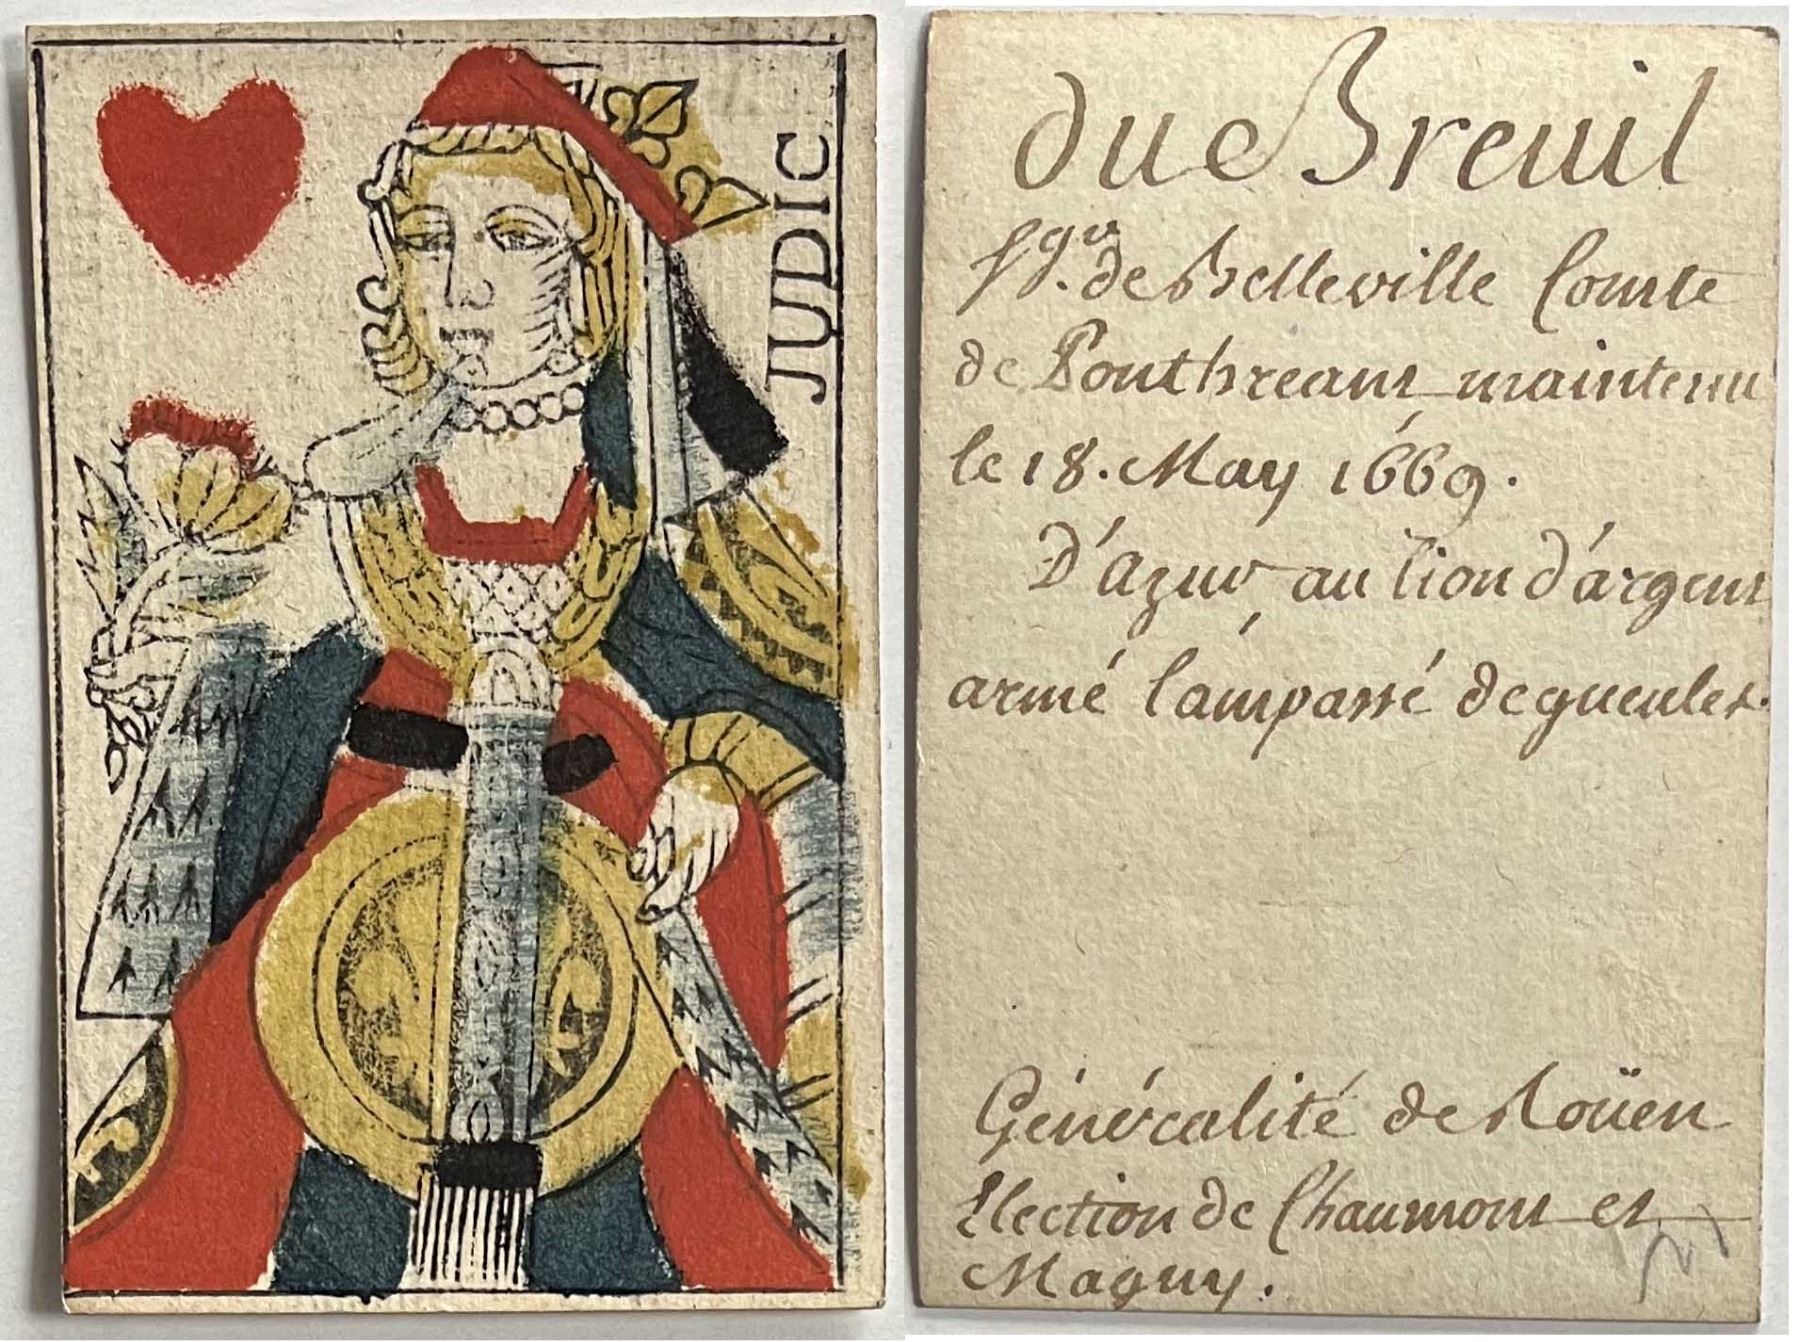 JUDIC
du Breuil
Sgr. de Belleville Comte
de Ponthreant maintenu
le 18. May 1669.
D'azur au lion d'argent
armé lampassé de gueules.
Généralité de Roüen
Election de Chaumont et
Magny.